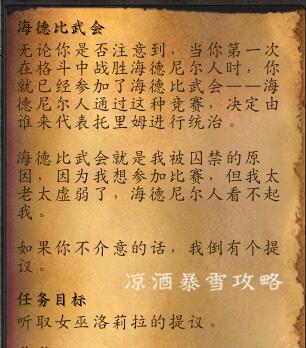 海德比武会
无论你是否注意到，当你第一次
在格斗中战胜海德尼尔人时，你
就已经参加了海德比武会——海
德尼尔人通过这种竞赛，决定由
谁来代表托里姆进行统治。
海德比武会就是我被囚禁的原
因，因为我想参加比赛，但我太
老太虚弱了，海德尼尔人看不起
我。
如果你不介意的话，我倒有个提
议。
凉酒暴雪攻略
任务目标
听取女巫洛莉拉的提议。